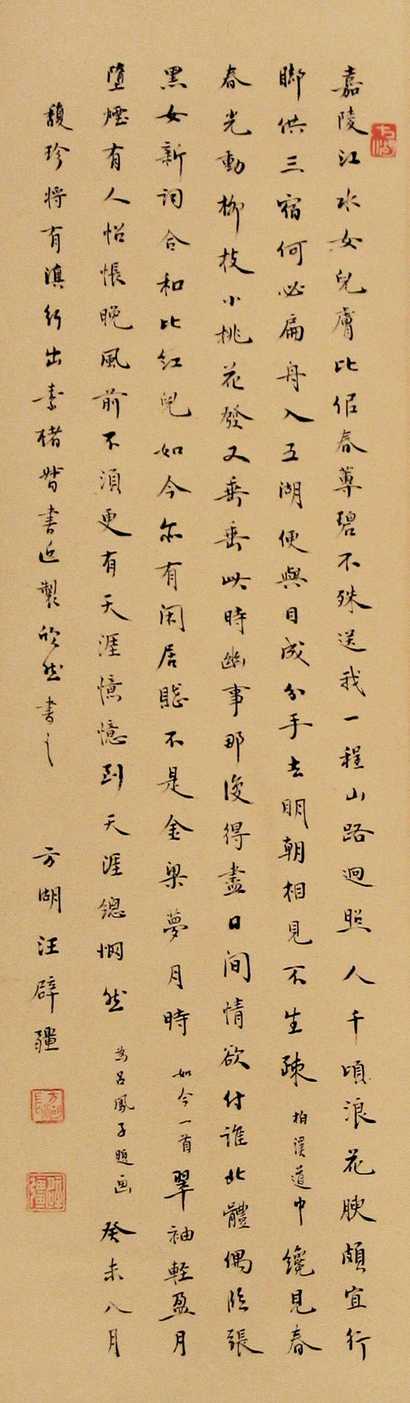 嘉陵江水女兒膚比似春蓴碧不殊送我一程山路迥照人千頃浪花腴頗宜行
脚供三宿何必扁舟入五湖便與目成分手去明朝相見不生疎 柏溪道中 纔見春
春光動柳枝小桃花發又垂垂此時幽事那復得盡日閒情欲付誰北體偶臨張
黑女新詞合和比紅兒如今尓有閑居不是金梁夢月時 如今一首 翠袖輕盈月
墮煙有人怊悵晚風前不須更有天涯憶憶到天涯總惘然 為呂鳳子題画 癸未八月
馥珍将有滇行出素楮督書近製欣然書之 方湖汪辟疆